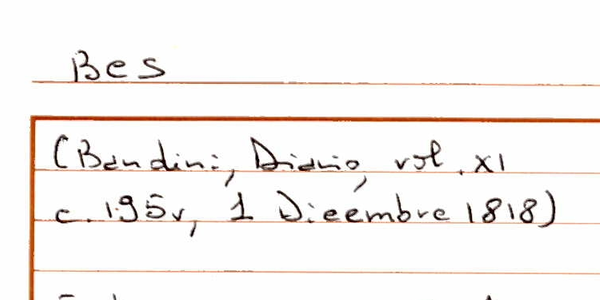 Bes
(Bandini, Diario, vol. XI
c. 195v, 1 Dicembre 1818)